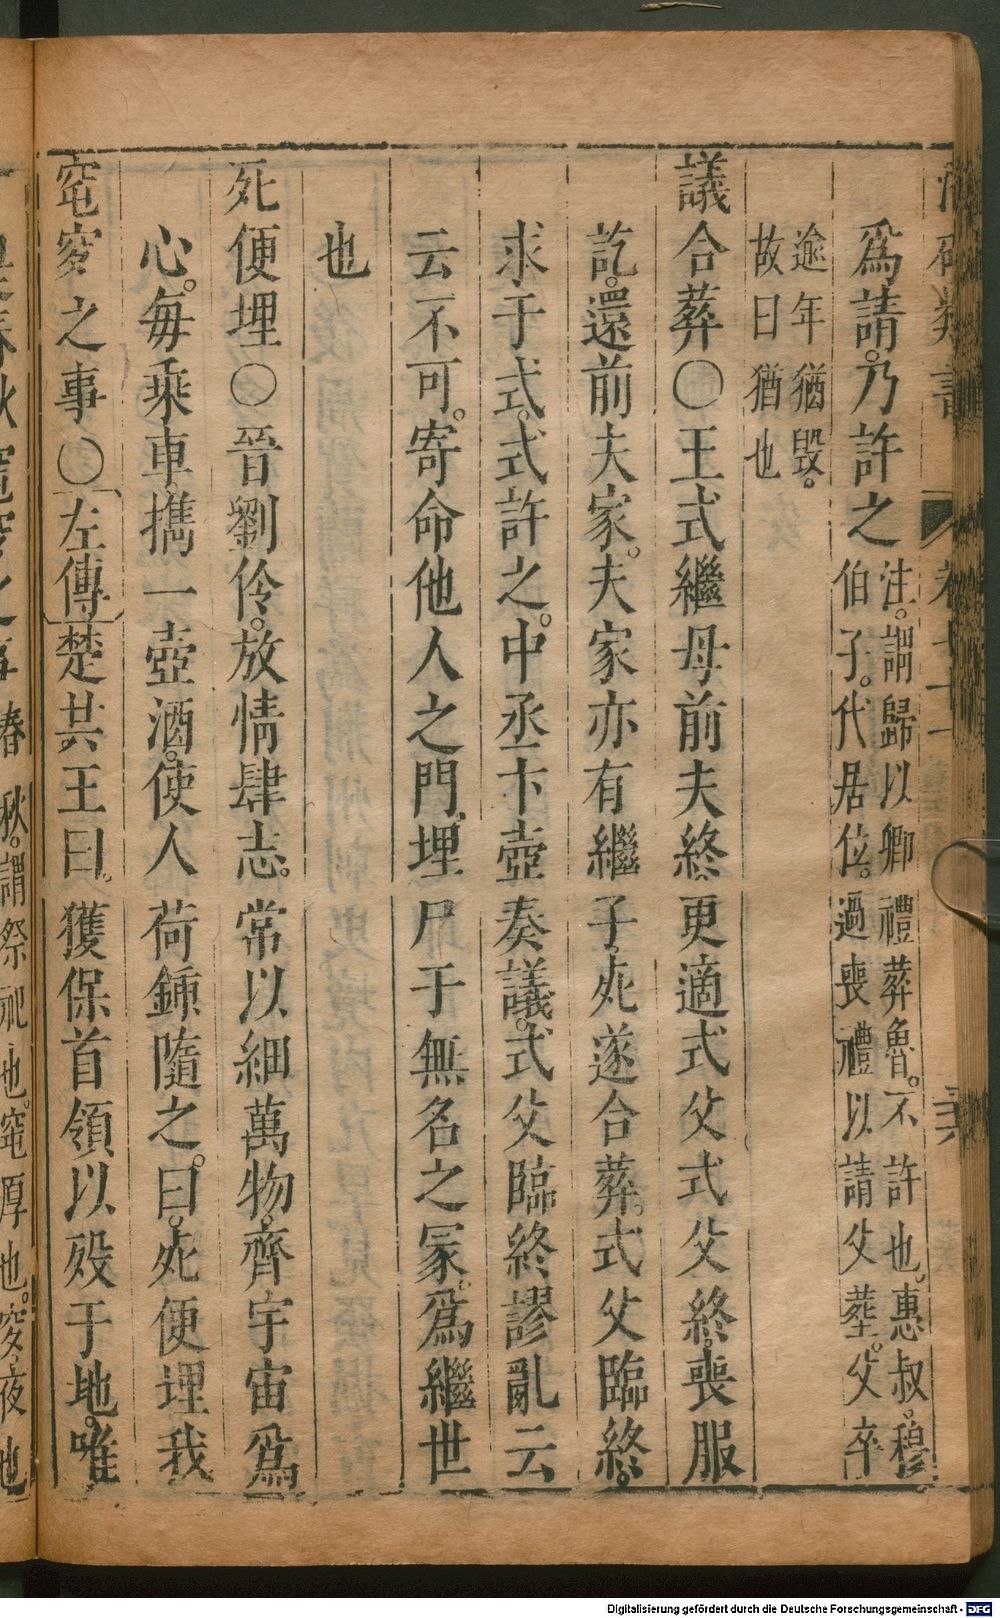 爲請。乃許之
注。謂歸以卿禮葬魯。不許也。惠叔。穆
伯子。代居位。過喪禮以請父塟。父卒
逾年猶毀。
故曰猶也
議合葬○王式繼母前夫終。更適式父式父終。喪服
訖。還前夫家。夫家亦有繼子。死遂合葬。式父臨終。
求于式。式許之。中丞卞壺奏議。式父臨終謬亂云
云不可。寄命他人之門。埋尸于無名之冢。爲繼世
也
死便埋○晉劉伶。放情肆志。常以細萬物。齊宇宙爲
心。每乘車擕一壺酒。使人荷鍤隨之。曰。死便埋我
窀穸之事○左傳楚共王曰。獲保首領以歿于地。唯
春秋。謂祭祀也。窀厚也。穸。夜也
Digitalisierung gefördert durch die Deutsche Forschungsgemeinschaft - DFG